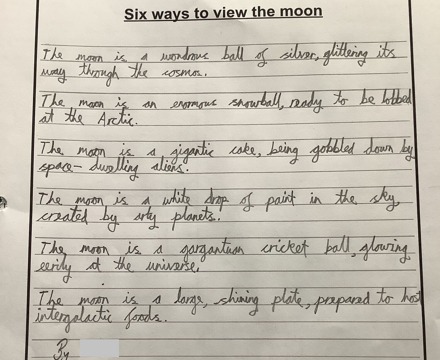 Six ways to view the moon
The moon is a wondrous ball of silver, glittering its
way through the cosmos.
The moon is an enormous snowball, ready to be lobbed
at the Arctic.
The moon is a gigantic cake, being gobbled down by
space-dwelling aliens.
The moon is a white drop of paint in the sky,
created by arty planets.
The moon is a gargantuan cricket ball, glowing
eerily at the universe.
The moon is a large, shining plate, prepared to host
intergalactic foods.
By